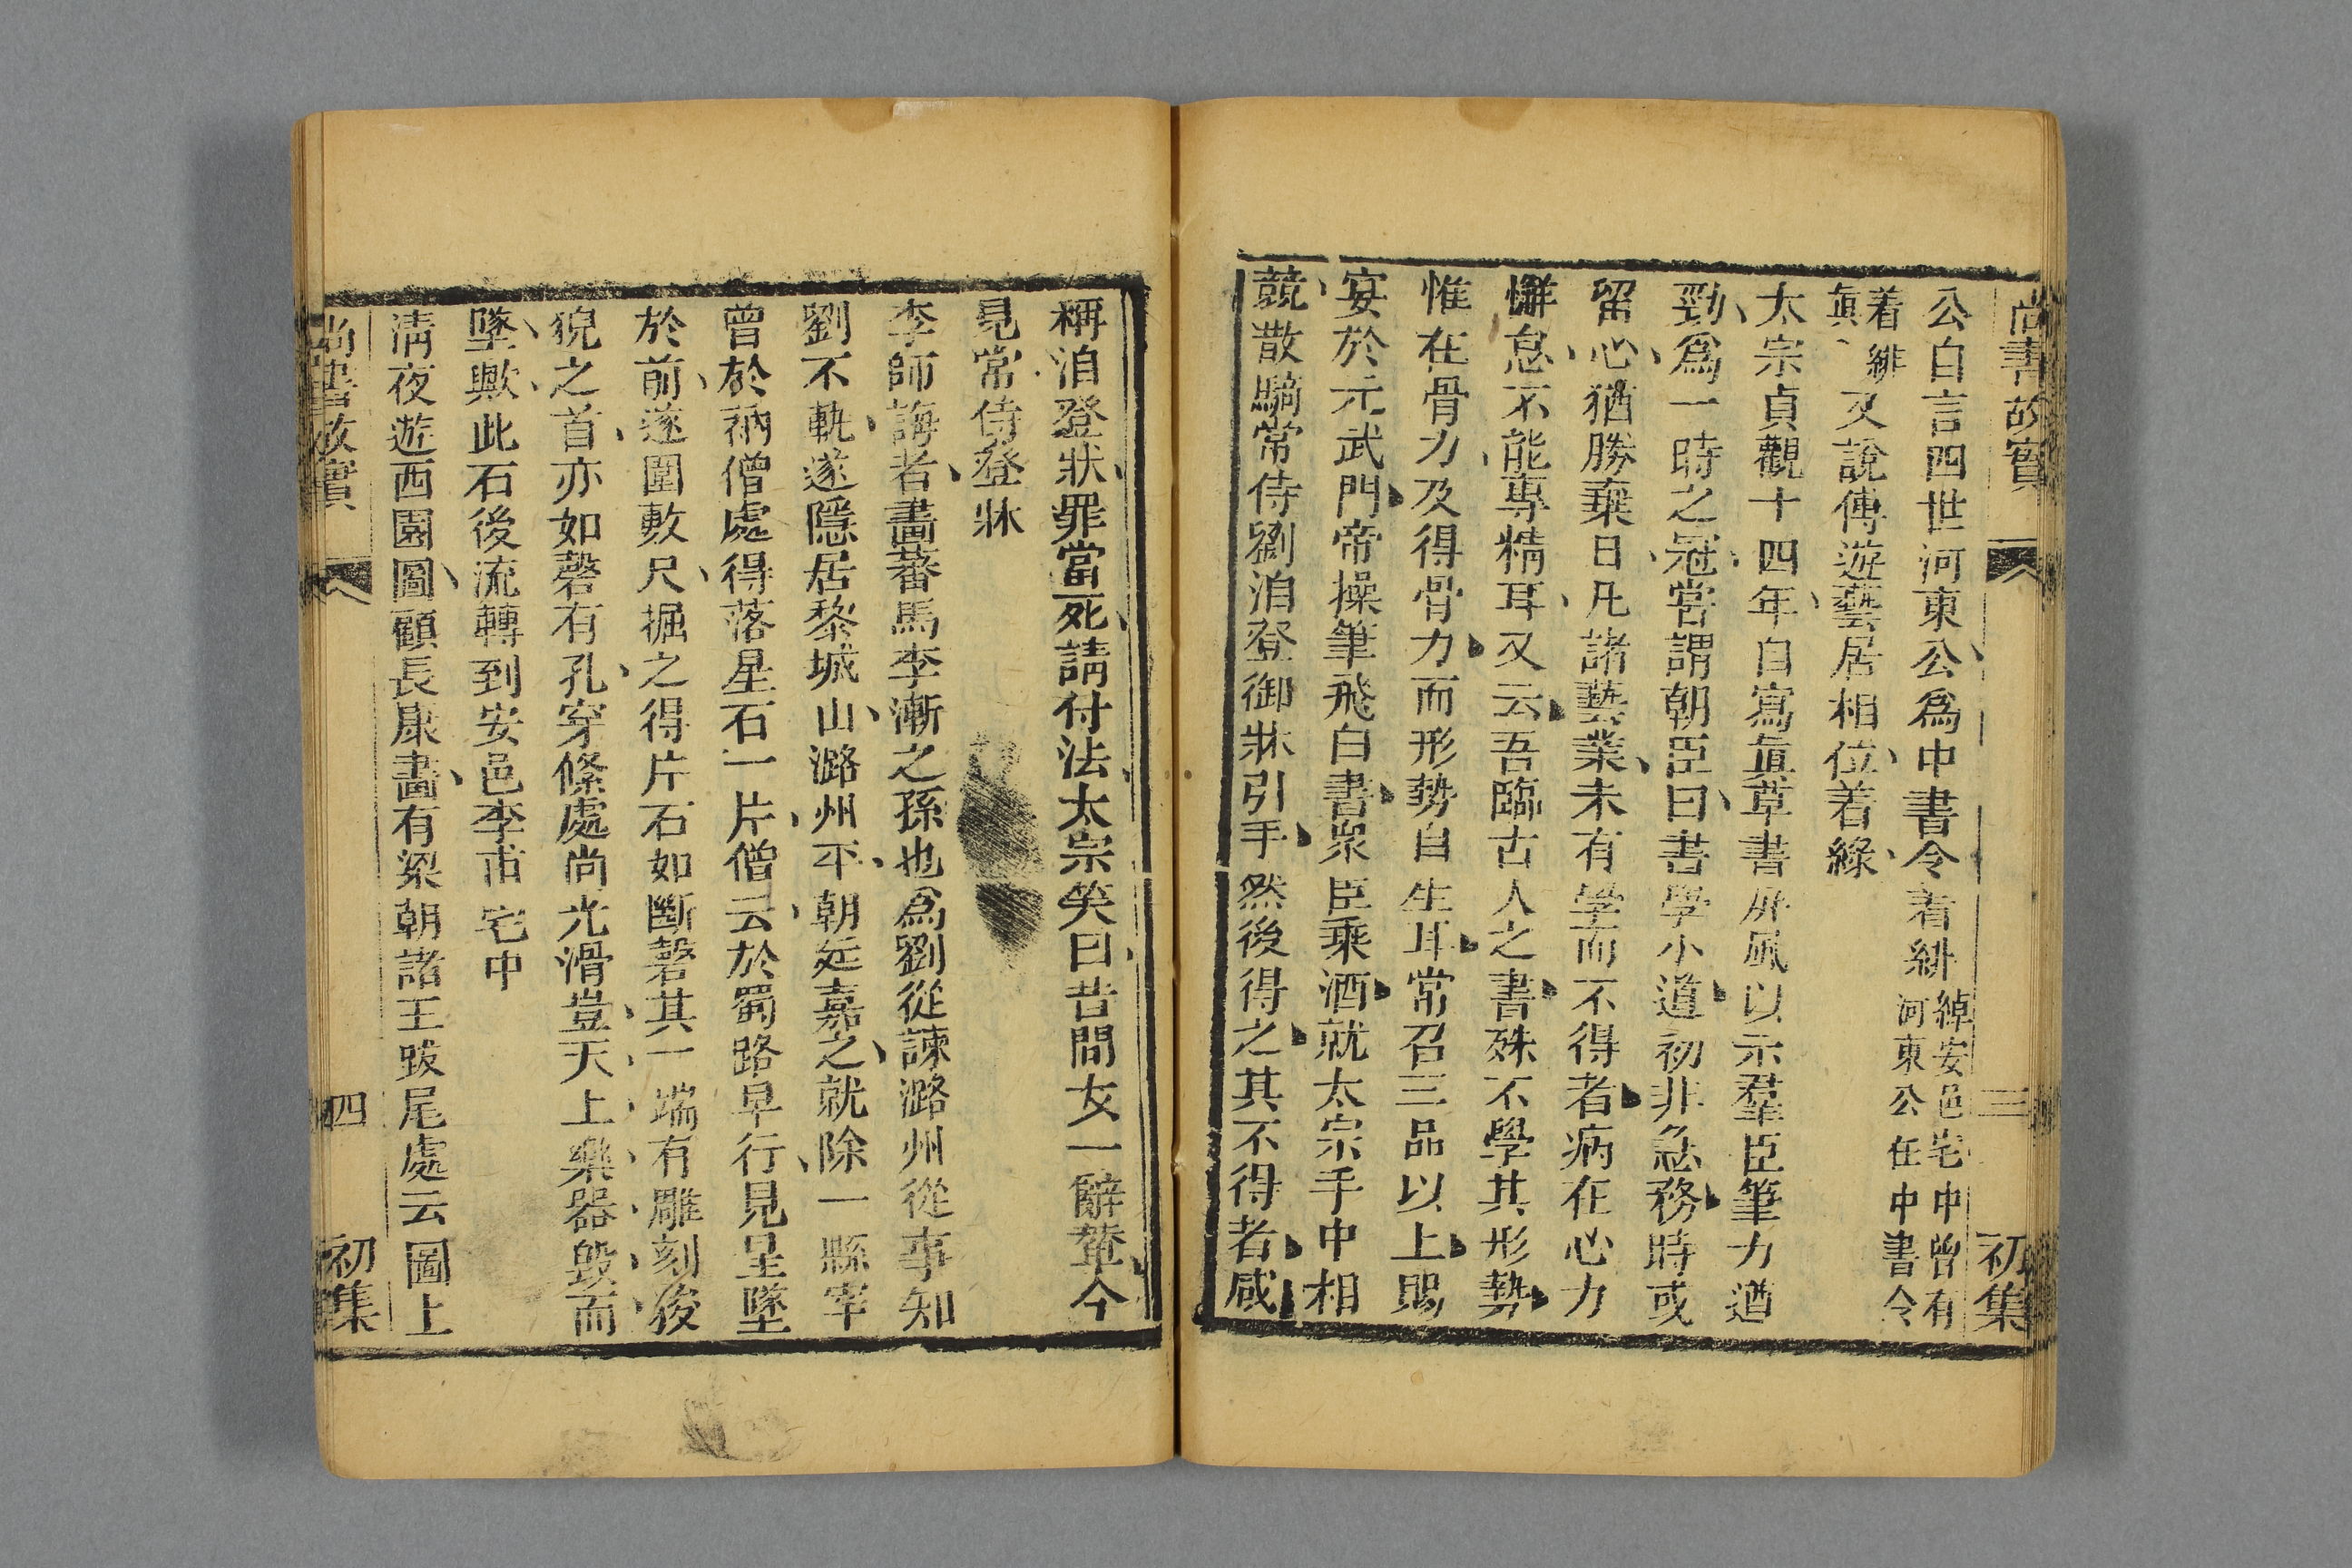 尚書故實 三 初集
公自言四世河東公爲中書令着緋 綽安邑宅中曾有
河東公任中書令
着緋
眞 又說傳遊藝居相位着綠
太宗貞觀十四年自寫眞草書屛風以示羣臣筆力遒
勁爲一時之冠嘗謂朝臣曰書學小道初非急務時或
留心猶勝棄日凡諸藝業未有學而不得者病在心力
懈怠不能專精耳又云吾臨古人之書殊不學其形勢
惟在骨力及得骨力而形勢自生耳常召三品以上賜
宴於元武門帝操筆飛白書衆臣乘酒就太宗手中相
競散騎常侍劉洎登御牀引手然後得之其不得者咸
稱洎登牀罪當死請付法太宗笑曰昔聞女一辭輦今
見常侍登牀
李師誨者畵蕃馬李漸之孫也爲劉從諫潞州從事知
劉不軌遂隱居黎城山潞州平朝廷嘉之就除一縣宰
曾於衲僧處得落星石一片僧云於蜀路早行見星墜
於前遂圍數尺掘之得片石如斷磬其一端有雕刻狻
猊之首亦如磬有孔穿絛處尚光滑豈天上樂器毀而
墜歟此石後流轉到安邑李甫宅中
淸夜遊西園圖顧長康畵有梁朝諸王跋尾處云圖上
尚書故實 四 初集